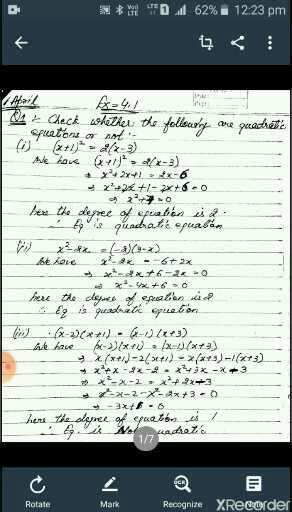 62% 12:23 pm
1 April Ex = 4.1
Q1 :- Check whether the following are quadratic
equations or not :-
(i) (x+1)² = 2(x-3)
We have (x+1)² = 2(x-3)
⇒ x²+2x+1 = 2x-6
⇒ x²+2x+1-2x+6=0
⇒ x²+7=0
here the degree of equation is 2.
∴ Eq is quadratic equation
(ii) x²-2x = (-2)(3-x)
We have x²-2x = -6+2x
⇒ x²-2x+6-2x=0
⇒ x²-4x+6=0
here the degree of equation is 2
∴ Eq is quadratic equation
(iii) (x-2)(x+1) = (x-1)(x+3)
We have (x-2)(x+1) = (x-1)(x+3)
⇒ x(x+1)-2(x+1) = x(x+3)-1(x+3)
⇒ x²+x-2x-2 = x²+3x-x-3
⇒ x²-x-2 = x²+2x-3
⇒ x²-x-2-x²-2x+3=0
⇒ -3x+1=0
here the degree of equation is 1
∴ Eq. is Non quadratic
1/7
Rotate Mark Recognize Note
XRecorder